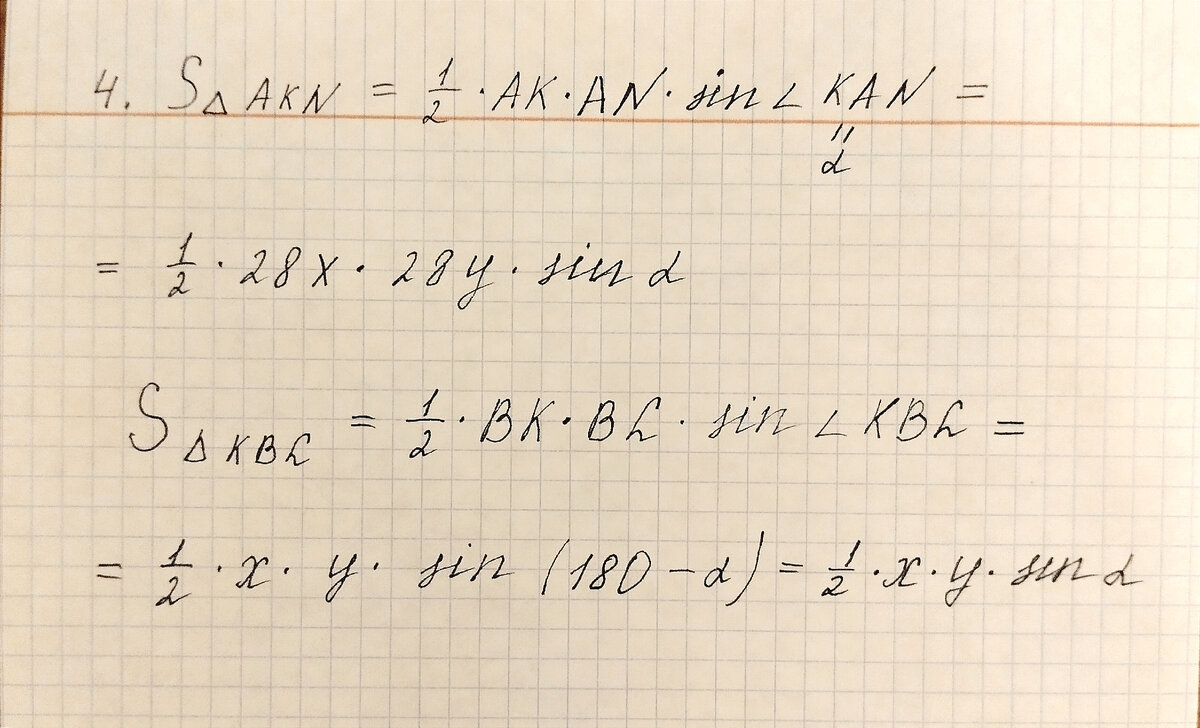 4. S△AKN = 1/2 · AK · AN · sin∠KAN =
"
α
= 1/2 · 28x · 28y · sin α
S△KBL = 1/2 · BK · BL · sin∠KBL =
= 1/2 · x · y · sin (180 - α) = 1/2 · x · y · sin α